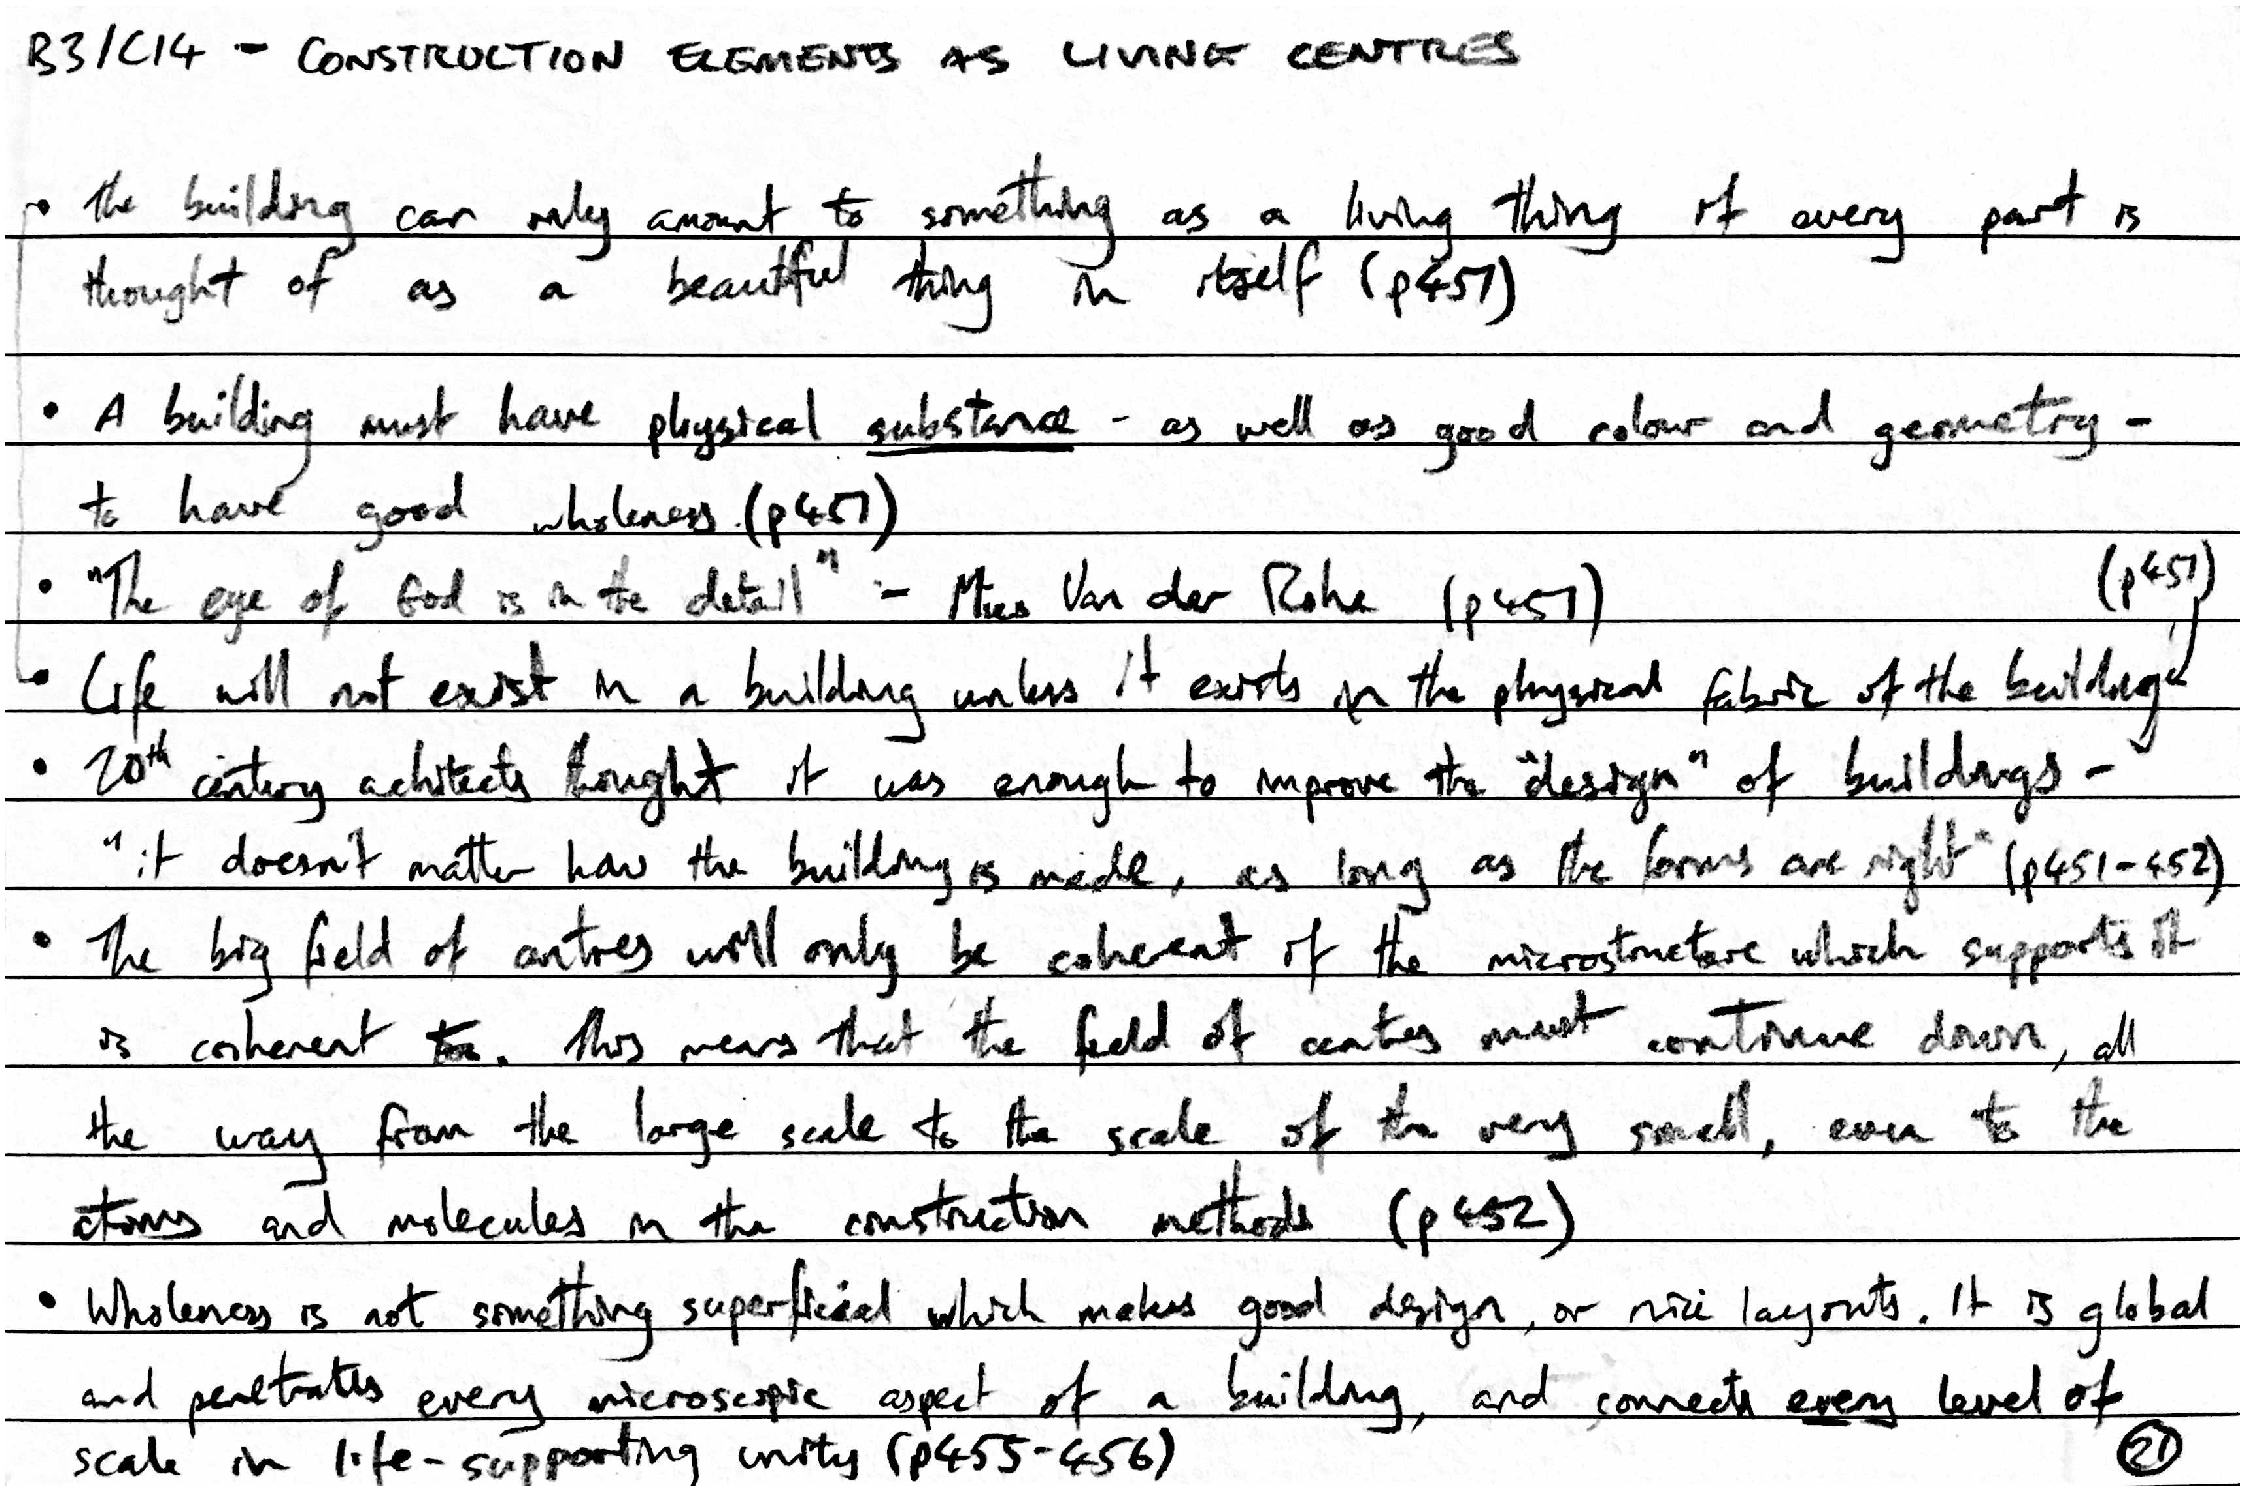 B3/C14 - CONSTRUCTION ELEMENTS AS LIVING CENTRES
• The building can only amount to something as a living thing if every part is
thought of as a beautiful thing in itself (p451)
• A building must have physical substance - as well as good colour and geometry -
to have good wholeness. (p451)
• "The eye of God is in the detail" - Mies Van der Rohe (p451)
(p451)
• Life will not exist in a building unless it exists in the physical fabric of the building
• 20th century achitects thought it was enough to improve the "design" of buildings -
"it doesn't matter how the building is made, as long as the forms are right" (p451-452)
• The big field of centres will only be coherent if the microstructure which supports it
is coherent too. This means that the field of centres must continue down, all
the way from the large scale to the scale of the very small, even to the
atoms and molecules in the construction methods (p452)
• Wholeness is not something superficial which makes good design, or nice layouts. It is global
and penetrates every microscopic aspect of a building, and connects every level of
scale in life-supporting unity (p455-456)
21